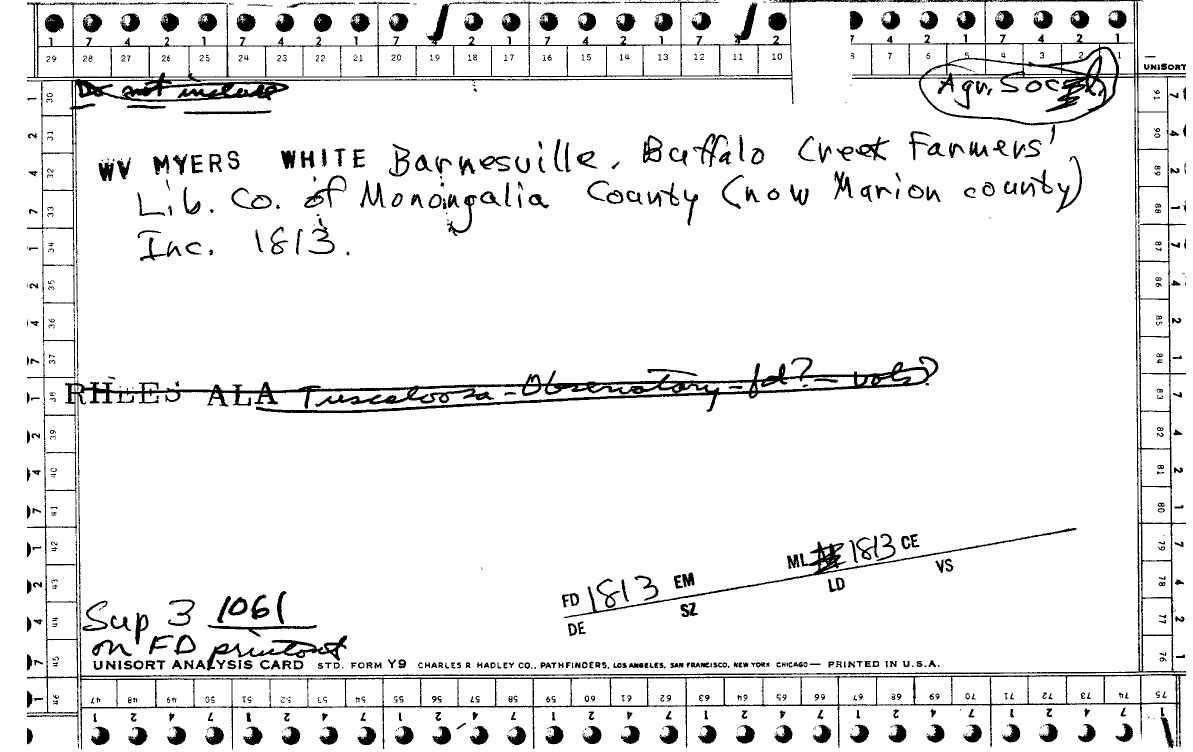 1 7 4 2 1 7 4 2 1 7 4 2 1 7 4 2 1 7 4 2 7 4 2 1 7 4 2 1
29 28 27 26 25 24 23 22 21 20 19 18 17 16 15 14 13 12 11 10 8 7 6 5 4 3 2 1
UNISORT
Do not include
Agri. Soc
WV MYERS WHITE Barnesville. Buffalo Creek Farmers'
Lib. Co. of Monongalia County (now Marion county)
Inc. 1813.
RHEES ALA Tuscaloosa - Observatory - fd? - vols?
ML 1813 CE
FD 1813 EM
LD VS
DE SZ
Sup 3 1061
on FD printout
UNISORT ANALYSIS CARD STD. FORM Y9 CHARLES R. HADLEY CO., PATHFINDERS, LOS ANGELES, SAN FRANCISCO, NEW YORK CHICAGO — PRINTED IN U.S.A.
47 48 49 50 51 52 53 54 55 56 57 58 59 60 61 62 63 64 65 66 67 68 69 70 71 72 73 74 75
1 2 4 7 1 2 4 7 1 2 4 7 1 2 4 7 1 2 4 7 1 2 4 7 1 2 4 7 1